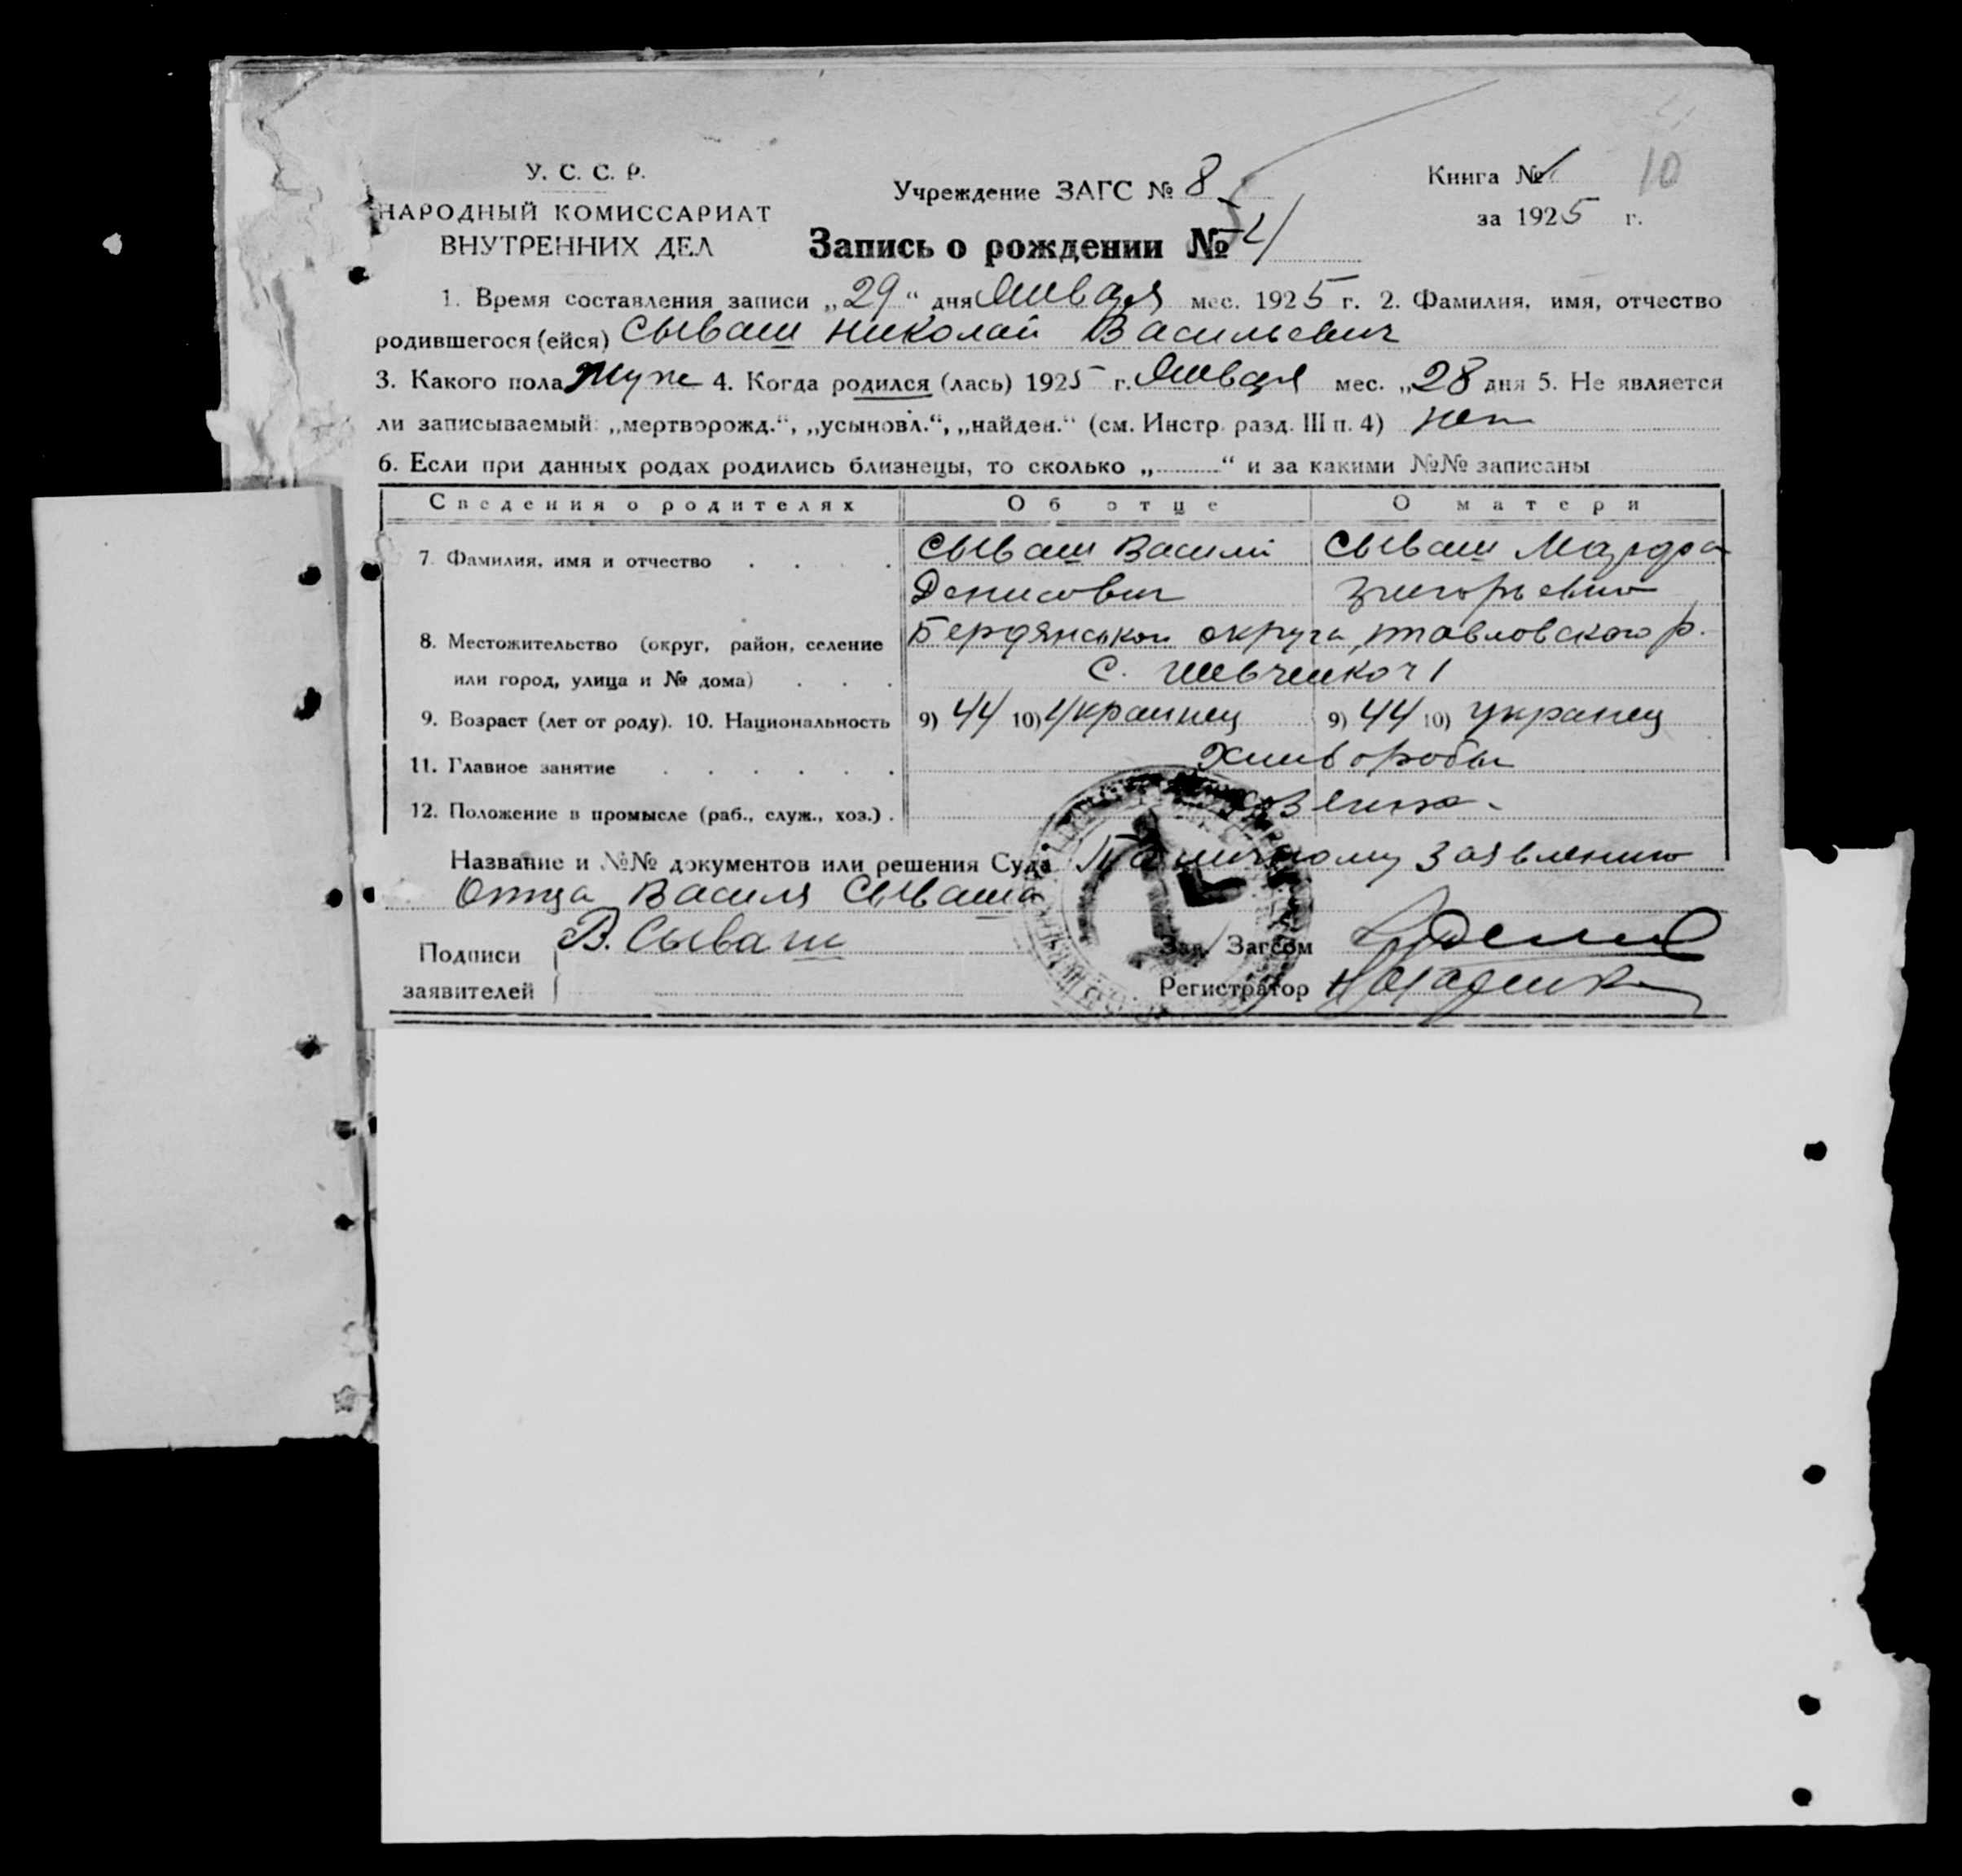 У. С. С. Р.
НАРОДНЫЙ КОМИССАРИАТ
ВНУТРЕННИХ ДЕЛ
Учреждение ЗАГС № 8
Книга № 1
10
за 1925 г.
Запись о рождении № 4
1. Время составления записи „29“ дня Января мес. 1925 г. 2. Фамилия, имя, отчество
родившегося (ейся) Сываш Николай Васильевич
3. Какого пола Муж 4. Когда родился (лась) 1925 г. Января мес. „28 дня 5. Не является
ли записываемый: „мертворожд.“, „усыновл.“, „найден.“ (см. Инстр. разд. III п. 4) нет
6. Если при данных родах родились близнецы, то сколько „..........“ и за какими №№ записаны
Сведения о родителях Об отце О матери
7. Фамилия, имя и отчество . . . . Сываш Василий Сываш Марфа
Денисович Григорьевна
8. Местожительство (округ, район, селение Бердянской округи, р.
или город, улица и № дома) . . . С. Шевченко 1
9. Возраст (лет от роду). 10. Национальность 9) 44 10) Украинец 9) 44 10) украинец
11. Главное занятие . . . . . . Хлибороби
12. Положение в промысле (раб., служ., хоз.) .
Название и №№ документов или решения Суда По личному заявлению
Отца Василя Сываша
Подписи В. Сываш Зав. Загсом
заявителей Регистратор